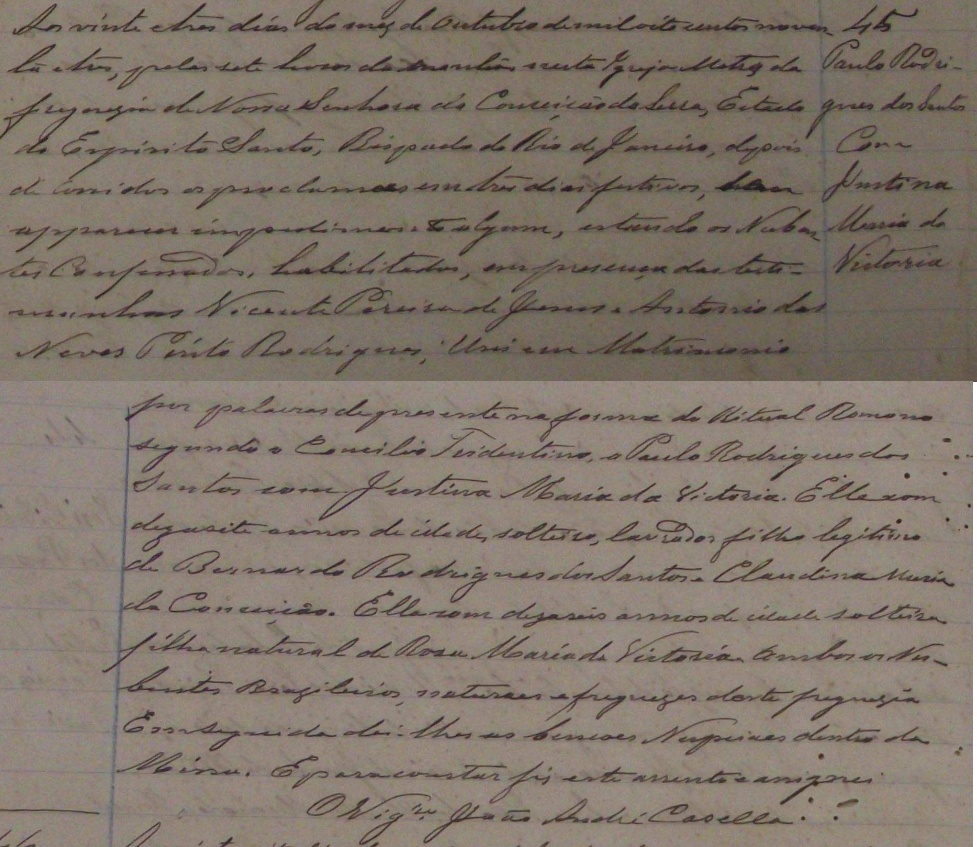 Aos vinte e tres dias do mez de Outubro de mil oito centos noven
ta e tres, pelas sete horas da manhã nesta Igreja Matriz da
freguezia de Nossa Senhora da Conceição da Serra, Estado
do Espirito Santo, Bispado do Rio de Janeiro, depois
de corridos os proclamas em tres dias festivos, sem
apparecer impedimento algum, estando os Nuben
tes Confessados, habilitados, em presença das teste-
munhas Vicente Pereira de Jesus e Antonio das
Neves Pinto Rodrigues, Uni em Matrimonio
45
Paulo Rodri-
gues dos Santos
Com
Justina
Maria da
Victoria
por palavras de presente na forma do Ritual Romano
segundo o Concilio Tridentino, a Paulo Rodrigues dos
Santos com Justina Maria da Victoria. Elle com
dezasite annos de idade, solteiro, lavrador, filho legitimo
de Bernardo Rodrigues dos Santos e Claudina Maria
da Conceição. Ella com dezaseis annos de idade solteira
filha natural de Rosa Maria da Victoria. Ambos os Nu-
bentes Brazileiros, naturaes e freguezes desta freguezia
Em seguida dei-lhes as bençoes Nupciaes dentro da
Missa. E para constar fiz este assento e assignei
O Vigro João André Casella